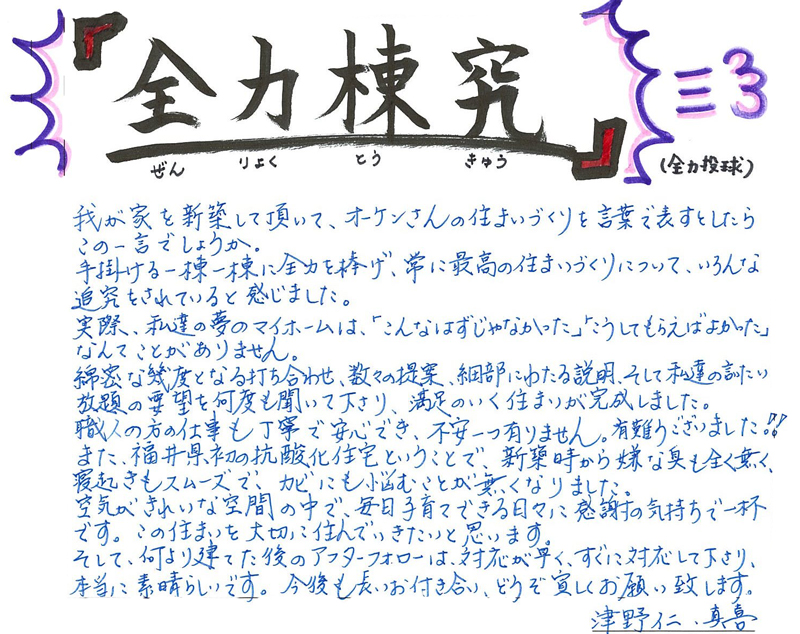 『全力棟究』
ぜん りょく とう きゅう
(全力投球)
我が家を新築して頂いて、オーケンさんの住まいづくりを言葉で表すとしたら
この一言でしょうか。
手掛ける一棟一棟に全力を捧げ、常に最高の住まいづくりについて、いろんな
追究をされていると感じました。
実際、私達の夢のマイホームは、「こんなはずじゃなかった」「こうしてもらえばよかった」
なんてことがありません。
綿密な幾度となる打ち合わせ、数々の提案、細部にわたる説明、そして私達の言いたい
放題の要望を何度も聞いて下さり、満足のいく住まいが完成しました。
職人の方の仕事も丁寧で安心でき、不安一つ有りません。有難うございました!!
また、福井県初の抗酸化住宅ということで、新築時から嫌な臭も全く無く、
寝起きもスムーズで、カビにも悩むことが無くなりました。
空気がきれいな空間の中で、毎日子育てできる日々に感謝の気持ちで一杯
です。この住まいを大切に住んでいきたいと思います。
そして、何より建てた後のアフターフォローは、対応が早く、すぐに対応して下さり、
本当に素晴らしいです。今後も長いお付き合い、どうぞ宜しくお願い致します。
津野仁・真喜